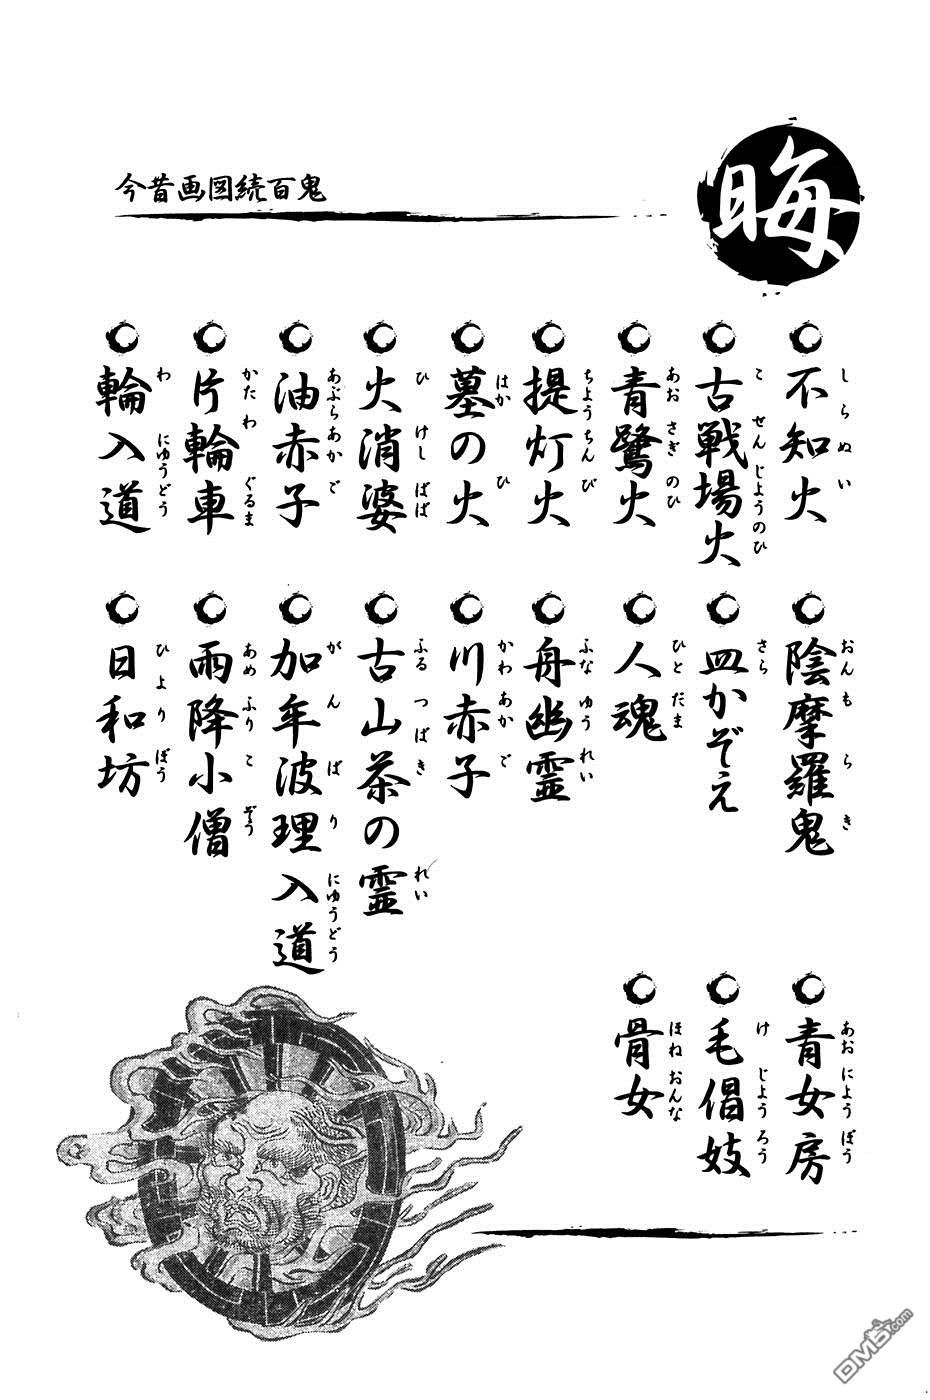 晦
今昔画図続百鬼
不知火
しらぬい
古戦場火
こせんじょうのひ
青鷺火
あおさぎのひ
提灯火
ちょうちんび
墓の火
はかひ
火消婆
ひけしばば
油赤子
あぶらあかご
片輪車
かたわぐるま
輪入道
わにゅうどう
陰摩羅鬼
おんもらき
皿かぞえ
さら
人魂
ひとだま
舟幽霊
ふなゆうれい
川赤子
かわあかご
古山茶の霊
ふるつばきれい
加牟波理入道
がんばりにゅうどう
雨降小僧
あめふりこぞう
日和坊
ひよりぼう
青女房
あおにょうぼう
毛倡妓
けじょうろう
骨女
ほねおんな
DM5.com